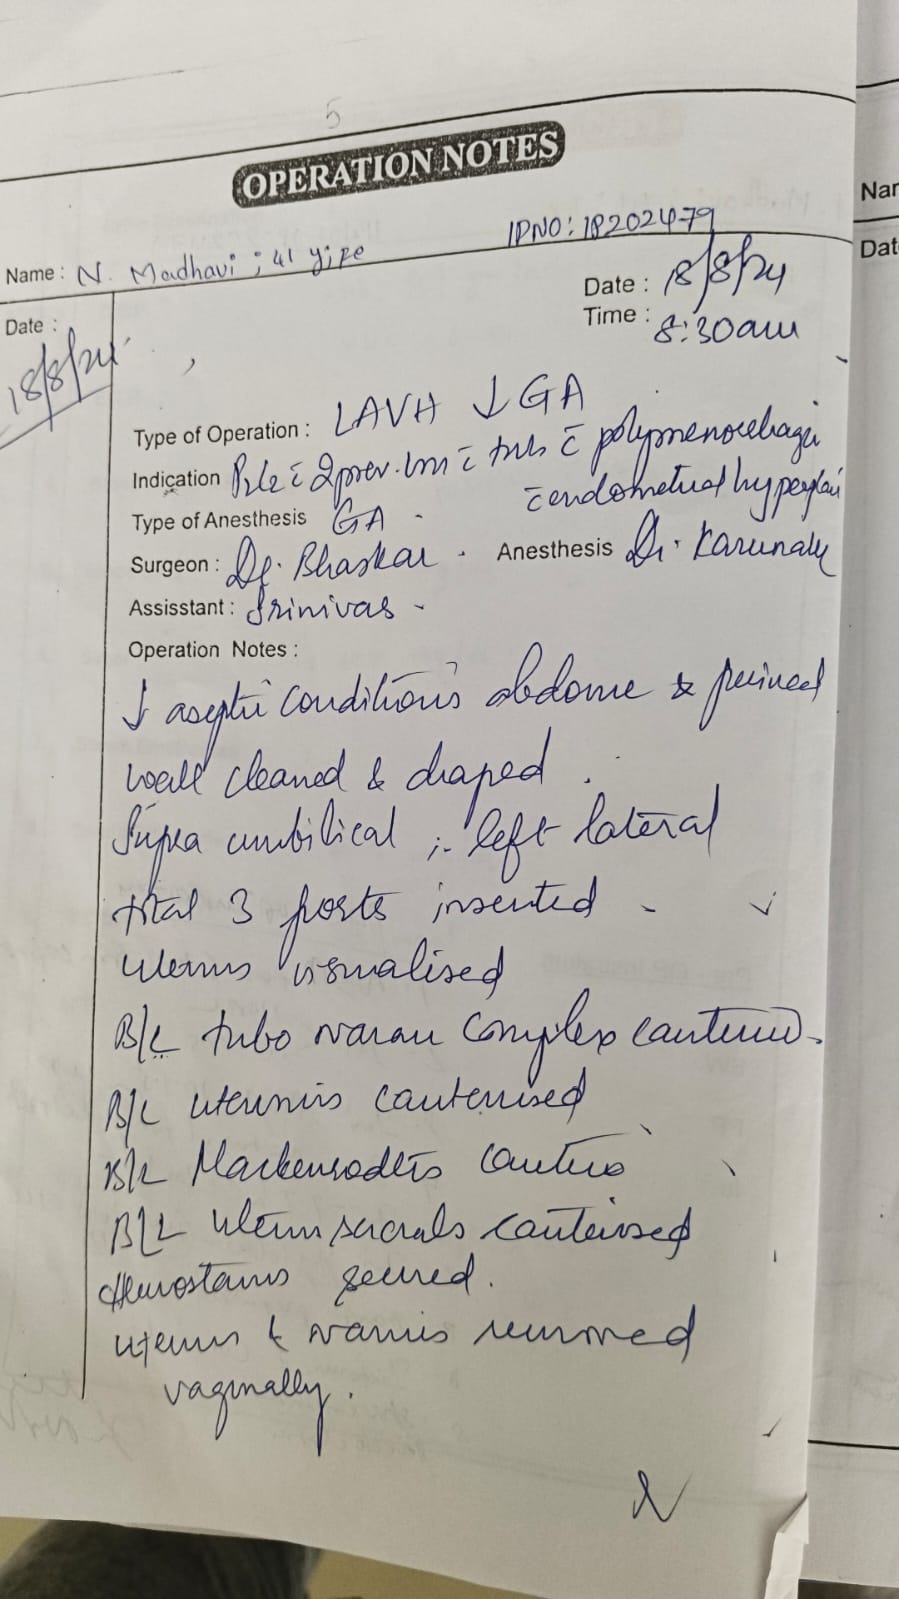 5
OPERATION NOTES
IPNO: 182022479
Name : N. Madhavi ; 41 y/
Date :
18/8/24
Date : 18/8/24
Time : 8:30am
Type of Operation : LAVH ↓ GA
Indication P2L2 c̄ 2 prev. c̄ c̄ polymenorrhagia
c̄ endometrial hyperplasia
Type of Anesthesis GA
Surgeon : Dr. Bhaskar . Anesthesis Dr.
Assisstant : Srinivas -
Operation Notes :
↓ aseptic conditions abdome & perineal
well cleaned & draped .
Supra umbilical ; left lateral
total 3 ports inserted -
uterus visualised
B/L tubo ovarian complex
B/L uterines cauterised
B/L
B/L uterosacrals cauterised
Hemostasis secured.
uterus & ovaries removed
vaginally .
Nar
Dat